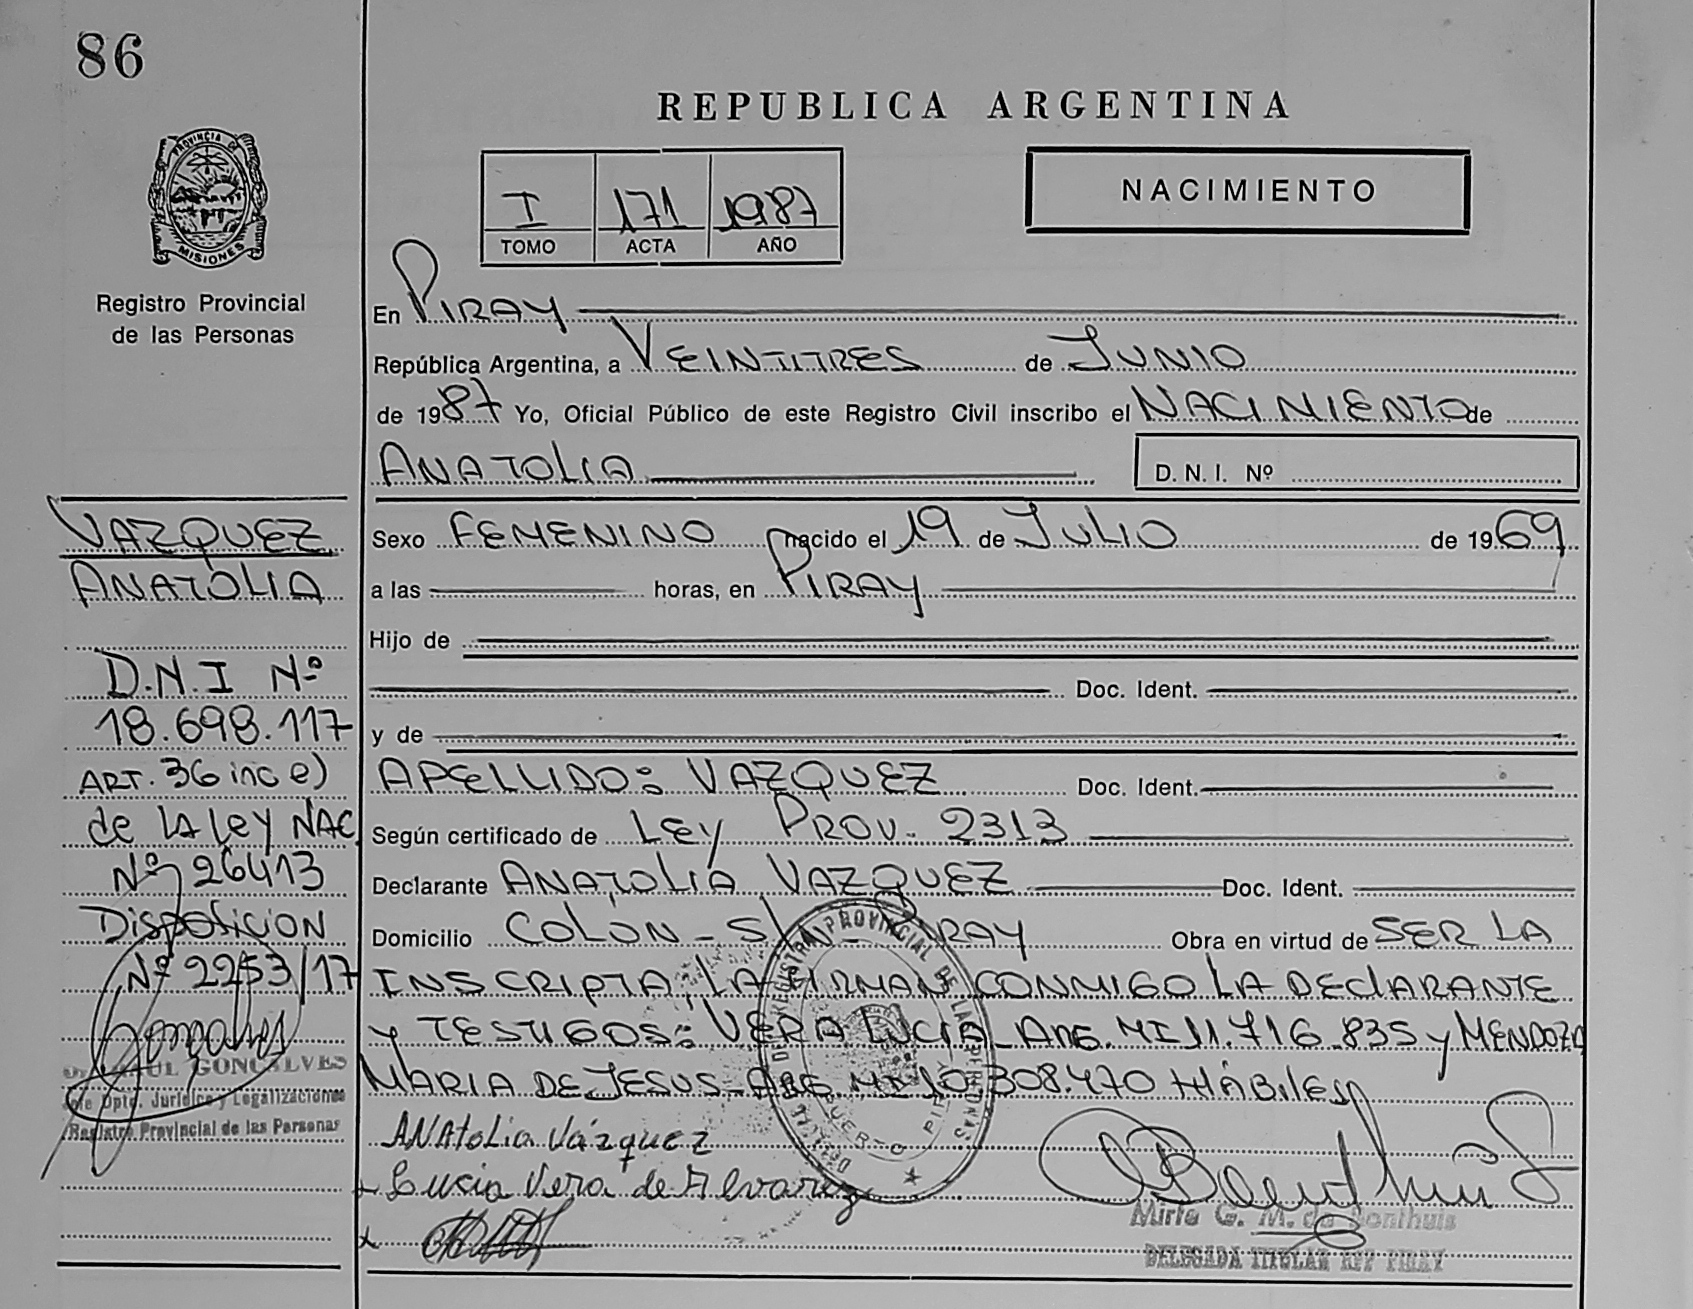 86
PROVINCIA DE
MISIONES
Registro Provincial
de las Personas
VAZQUEZ
ANATOLIA
D.N.I Nº
18.698.117
ART. 36 inc e)
de LA Ley NAC
Nº 26413
Disposicion
Nº 2253/17
GONCALVES
Dpto. Jurídico y Legalizaciones
Registro Provincial de las Personas
REPUBLICA ARGENTINA
I 171 1987
TOMO ACTA AÑO
NACIMIENTO
En PIRAY
República Argentina, a VEINTITRES de JUNIO
de 1987 Yo, Oficial Público de este Registro Civil inscribo el NACIMIENTO de
ANATOLIA
D. N. I. Nº
Sexo FEMENINO nacido el 19 de JULIO de 1969
a las horas, en PIRAY
Hijo de
Doc. Ident.
y de
APELLIDO: VAZQUEZ Doc. Ident.
Según certificado de LEY PROV. 2313
Declarante ANATOLIA VAZQUEZ Doc. Ident.
Domicilio COLON - S/ - PIRAY Obra en virtud de SER LA
INSCRIPTA, LA FIRMAN CONMIGO LA DEClARANTE
y TESTIGOS: VERA LUCIA - ARG. MI 11.716.835 y MENDOZA
MARIA DE JESUS - ARG MI 10.308.470 HÁBILES
ANAtoLia Vázquez
Lucia Vera de Alvarez
REGISTRO PROVINCIAL DE LAS PERSONAS
PUERTO PIRAY
Mirta G. M. de Bonthuis
DELEGADA TITULAR RPP PIRAY